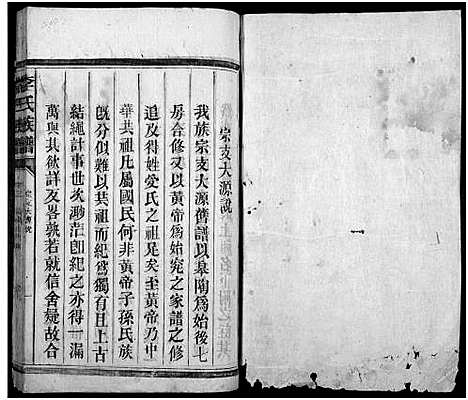 宗支大源說
我族宗支大源舊譜以皋陶爲始後七
房合修又以黃帝爲始究之家譜之修
追及得姓受氏之祖足矣至黃帝乃中
華共祖凡屬國民何非黃帝子孫氏族
旣分似難以共祖而紀爲獨有且上古
結繩計事世次渺茫卽紀之亦得一漏
萬與其欲詳反晷孰若就信舍疑故合
李氏族譜